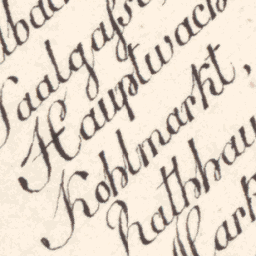 Saalgasse
Hauptwach
Kohlmarkt,
Rathhau
Mark